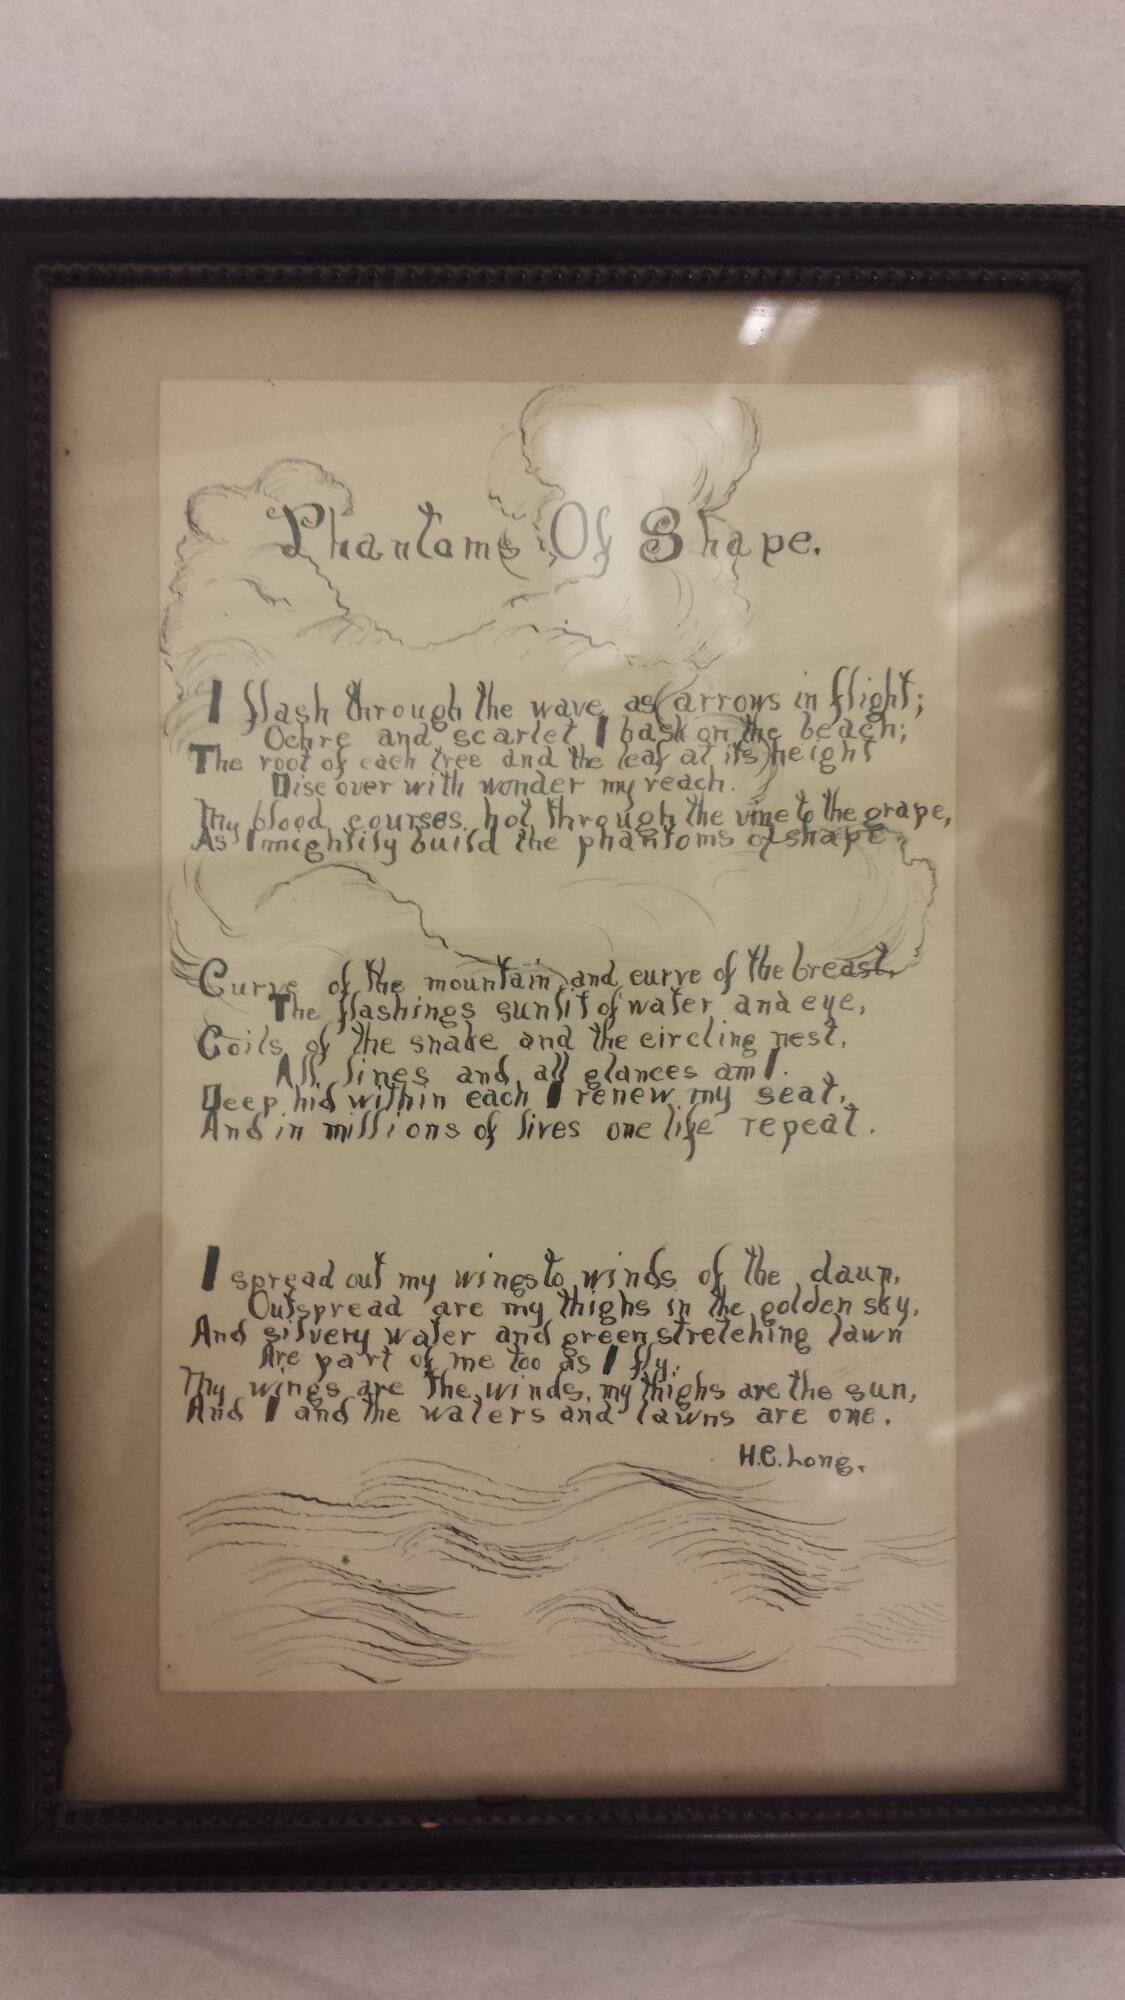 Phantoms Of Shape.
I flash through the wave as arrows in flight;
Ochre and scarlet I bask on the beach;
The root of each tree and the leaf at its height
Discover with wonder my reach.
My blood courses hot through the vine to the grape,
As I mightily build the phantoms of shape.
Curve of the mountain and curve of the breast,
The flashings sunlit of water and eye,
Coils of the snake and the circling nest,
All lines and all glances am I.
Deep hid within each I renew my seat,
And in millions of lives one life repeat.
I spread out my wings to winds of the dawn,
Outspread are my thighs in the golden sky,
And silvery water and green stretching lawn
Are part of me too as I fly.
My wings are the winds, my thighs are the sun,
And I and the waters and lawns are one.
H.C. Long.